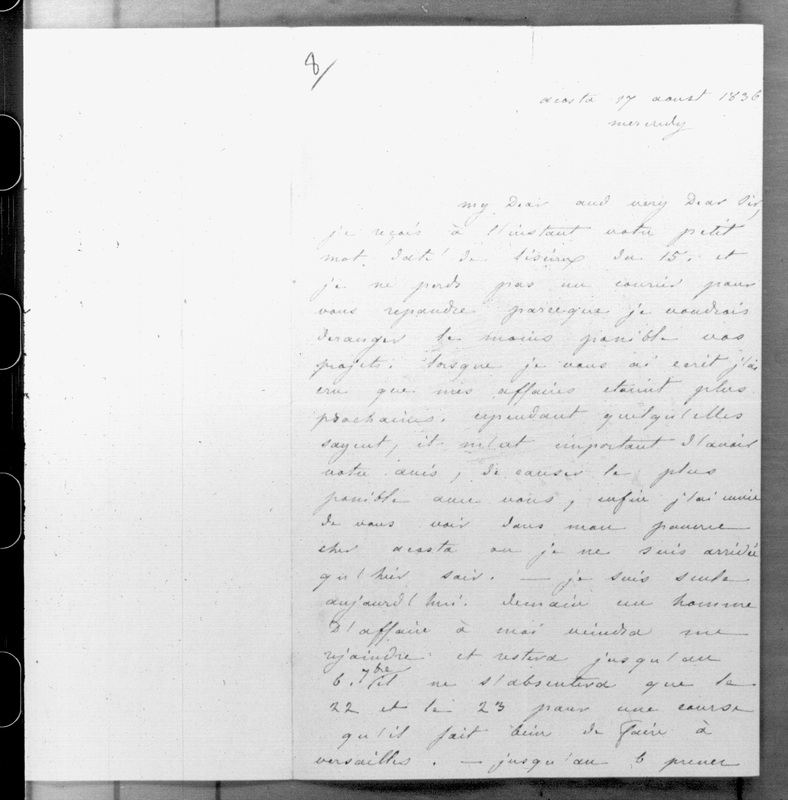 8/
acosta 17 aoust 1836
mercredy
my Dear and very Dear Sir,
je reçois à l'instant votre petit
mot daté de Lisieux du 15. et
je ne perds pas un courier pour
vous repondre parceque je voudrois
deranger le moins possible vos
projets. lorsque je vous ai ecrit j'ai
cru que mes affaires etoient plus
prochaines. cependant quelqu'elles
soyent, il m'est important d'avoir
votre avis, de causer le plus
possible avec vous, enfin j'ai envie
de vous voir dans mon pauvre
cher acosta ou je ne suis arrivée
qu'hier soir. — je suis seule
aujourd'hui. demain un homme
d'affaire à moi viendra me
rejoindre et restera jusqu'au
6. 7bre il ne s'absentera que le
22 et le 23 pour une course
qu'il fait bien de faire à
versailles. — jusqu'au 6 prenez